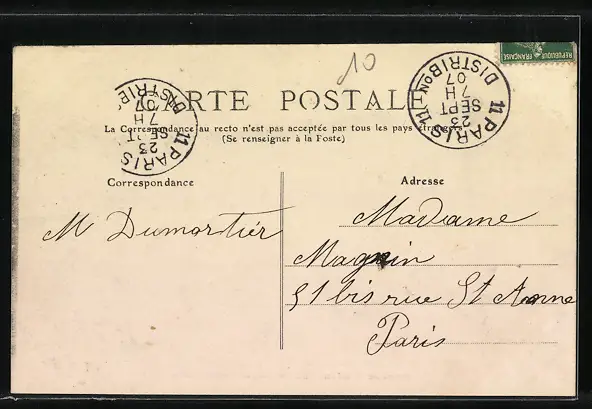 10
CARTE POSTALE
La Correspondance au recto n'est pas acceptée par tous les pays étrangers
(Se renseigner à la Poste)
11 PARIS 11
DISTRIBON
7 H
23
SEPT
07
11 PARIS 11
DISTRIBON
7 H
23
SEPT
07
REPUBLIQUE FRANÇAISE
Correspondance
M Dumortier
Adresse
Madame
Magnin
51 bis rue St Anne
Paris